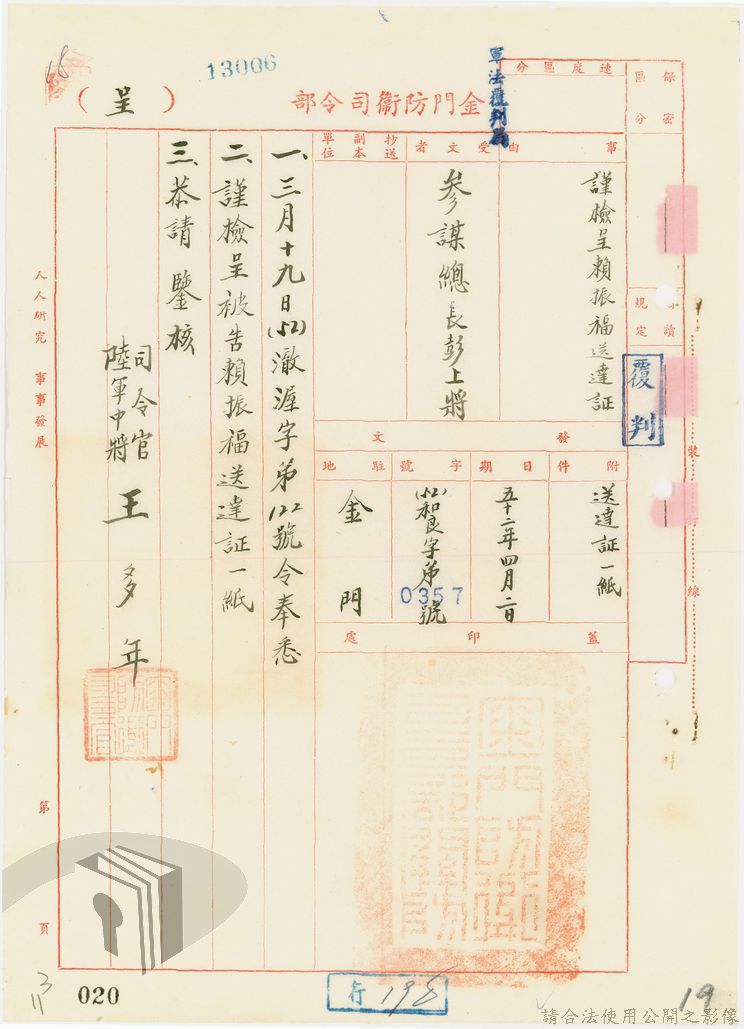 13006
軍法覆判局
金門防衛司令部
(呈)
保密
區分
速度區分
事由
謹檢呈賴振福送達証
受文者
參謀總長彭上將
抄送副本單位
覆判
發文
附件
送達証一紙
日期
五十二年四月二日
字號
(52)和良字第0357號
駐地
金門
蓋印處
一、三月十九日(52)澈渥字第122號令奉悉
二、謹檢呈被告賴振福送達証一紙
三、恭請 鑒核
司令官
陸軍中將 王多年
裝訂線
人人研究 事事發展
第 頁
020
行 198
19
請合法使用公開之影像